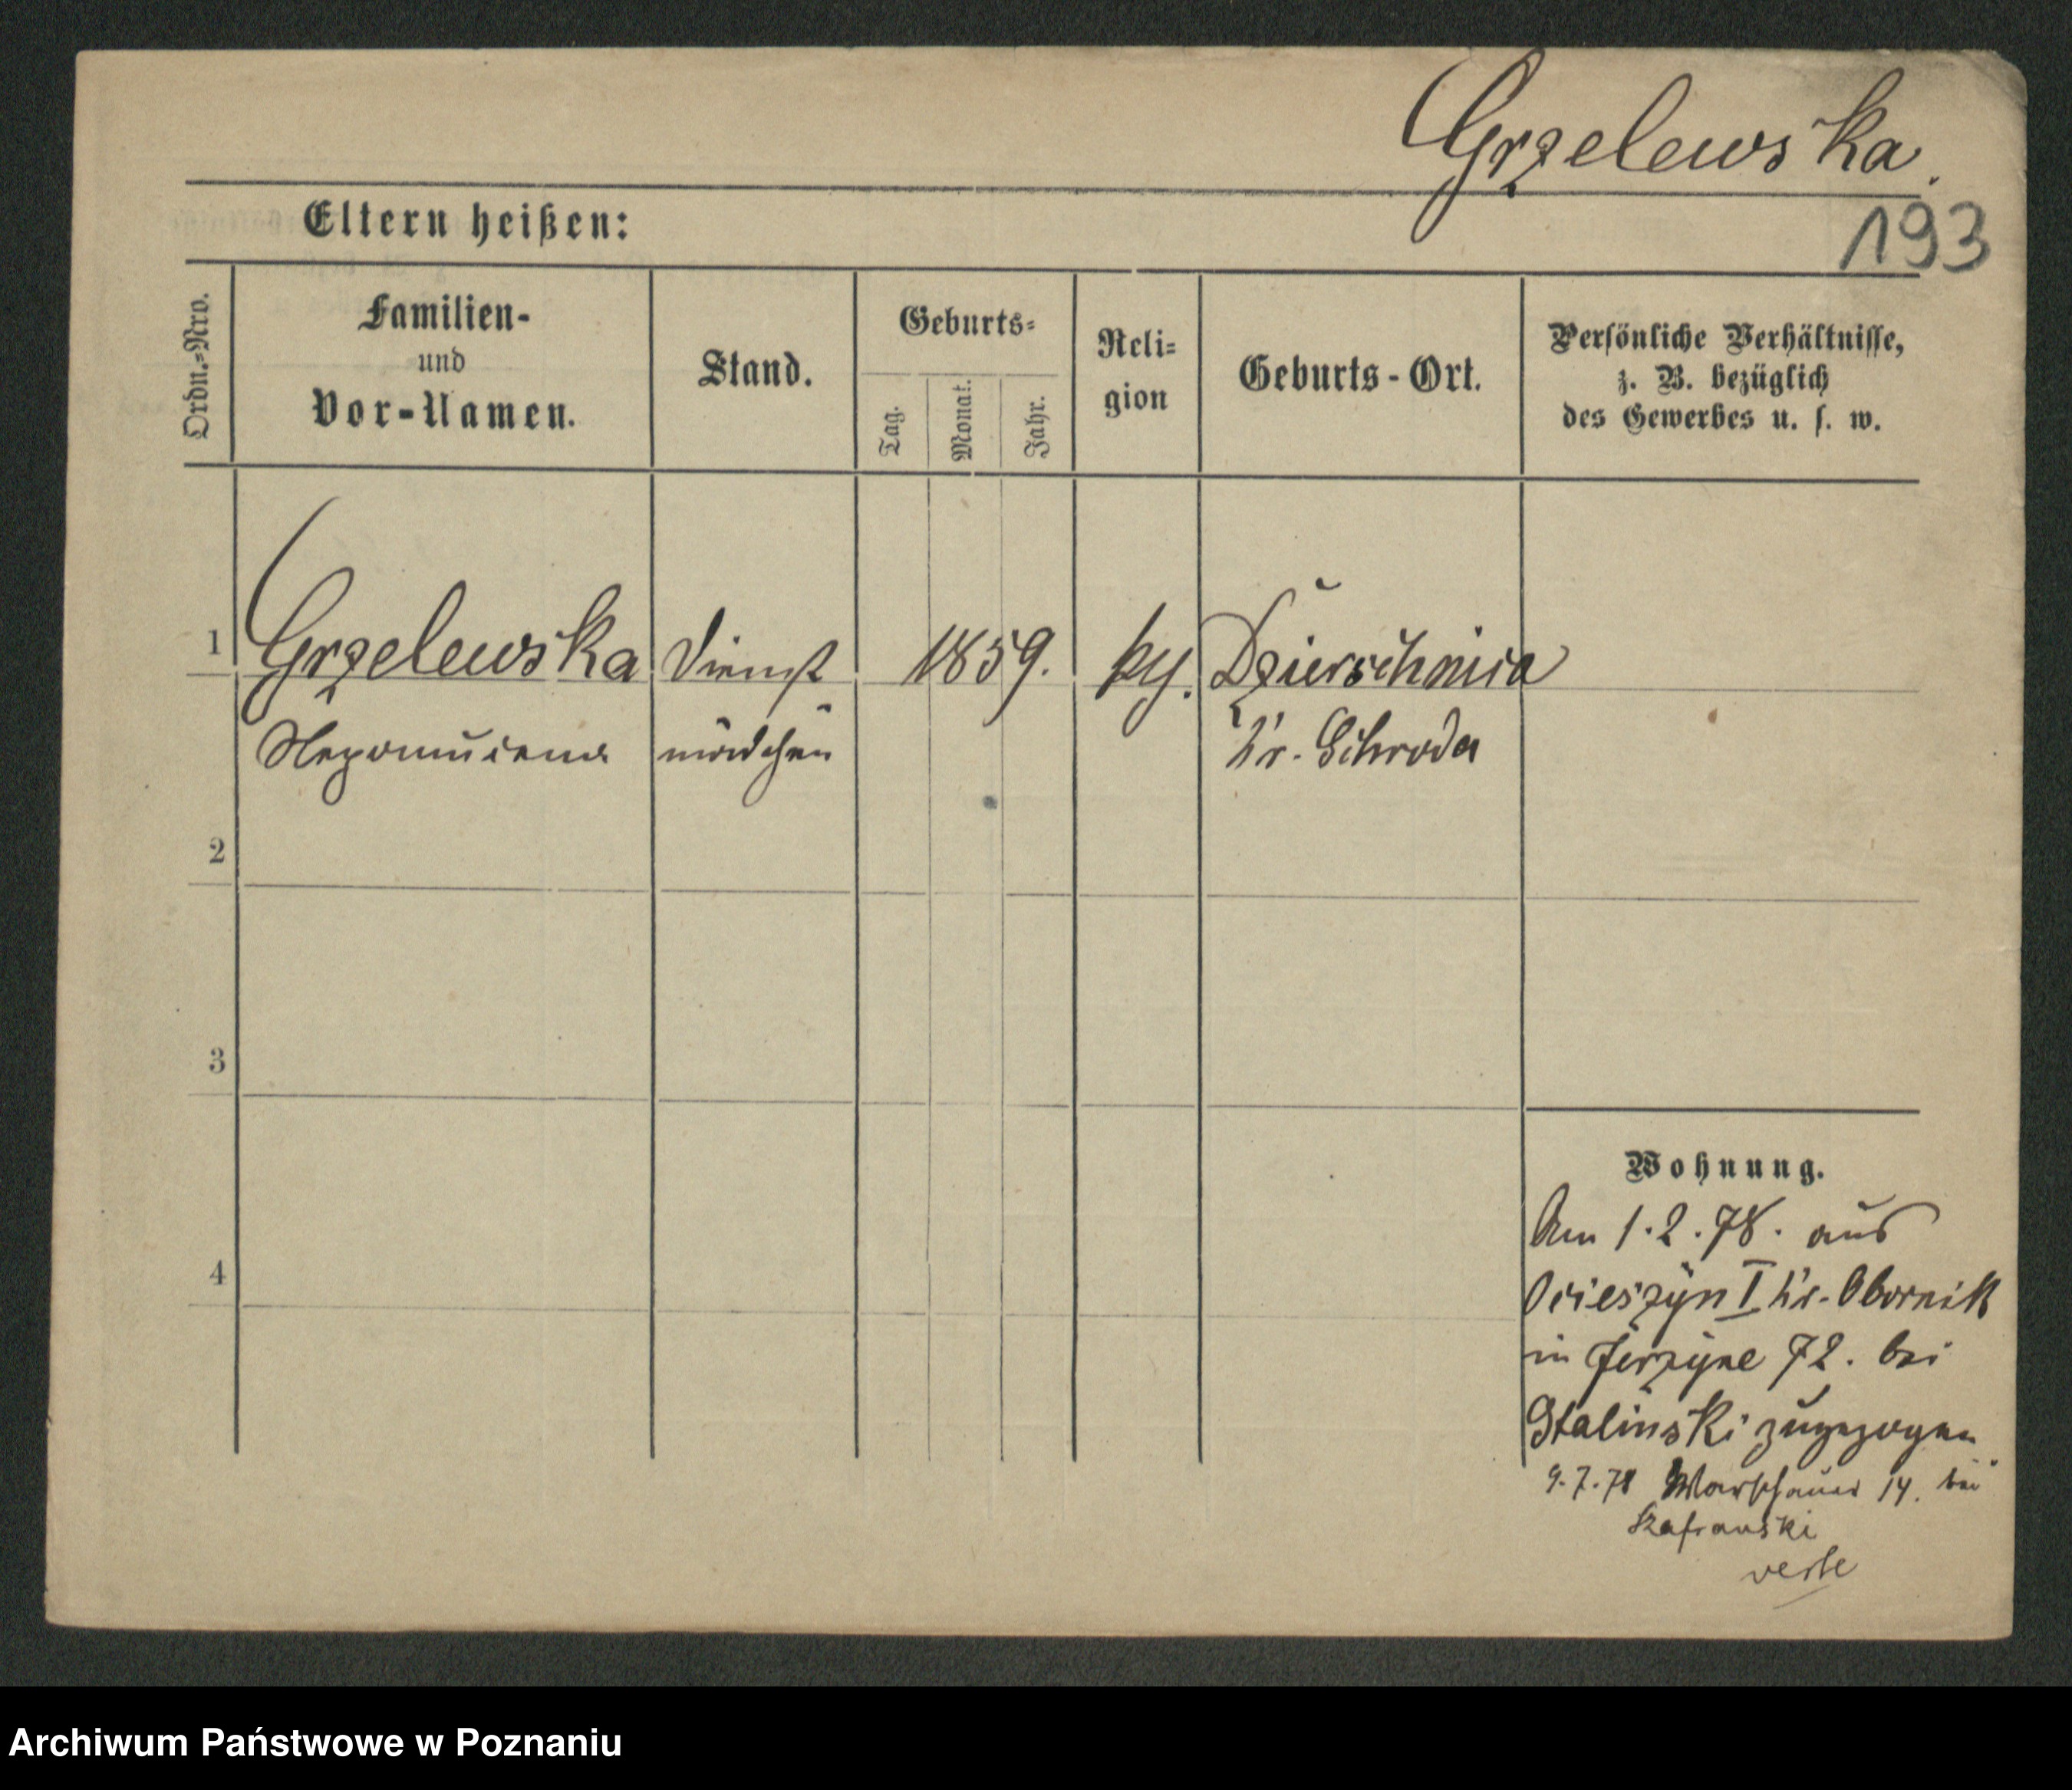 Grzelewska.
193
Eltern heißen:
Ordn.-Nro.
Familien-
und
Vor-Namen.
Stand.
Geburts-
Tag.
Monat.
Jahr.
Reli-
gion
Geburts-Ort.
Persönliche Verhältnisse,
z. B. bezüglich
des Gewerbes u. s. w.
1 Grzelewska Dienst 1859. Dzierschnica
Nepomucena mädchen Kr. Schroda
2
3
4
Wohnung.
Am 1.2.78. aus
I Kr. Obornik
in 72. bei
Stalinski zugezogen
9.7.78 Warschauer 14. bei
Szafranski
verte
Archiwum Państwowe w Poznaniu